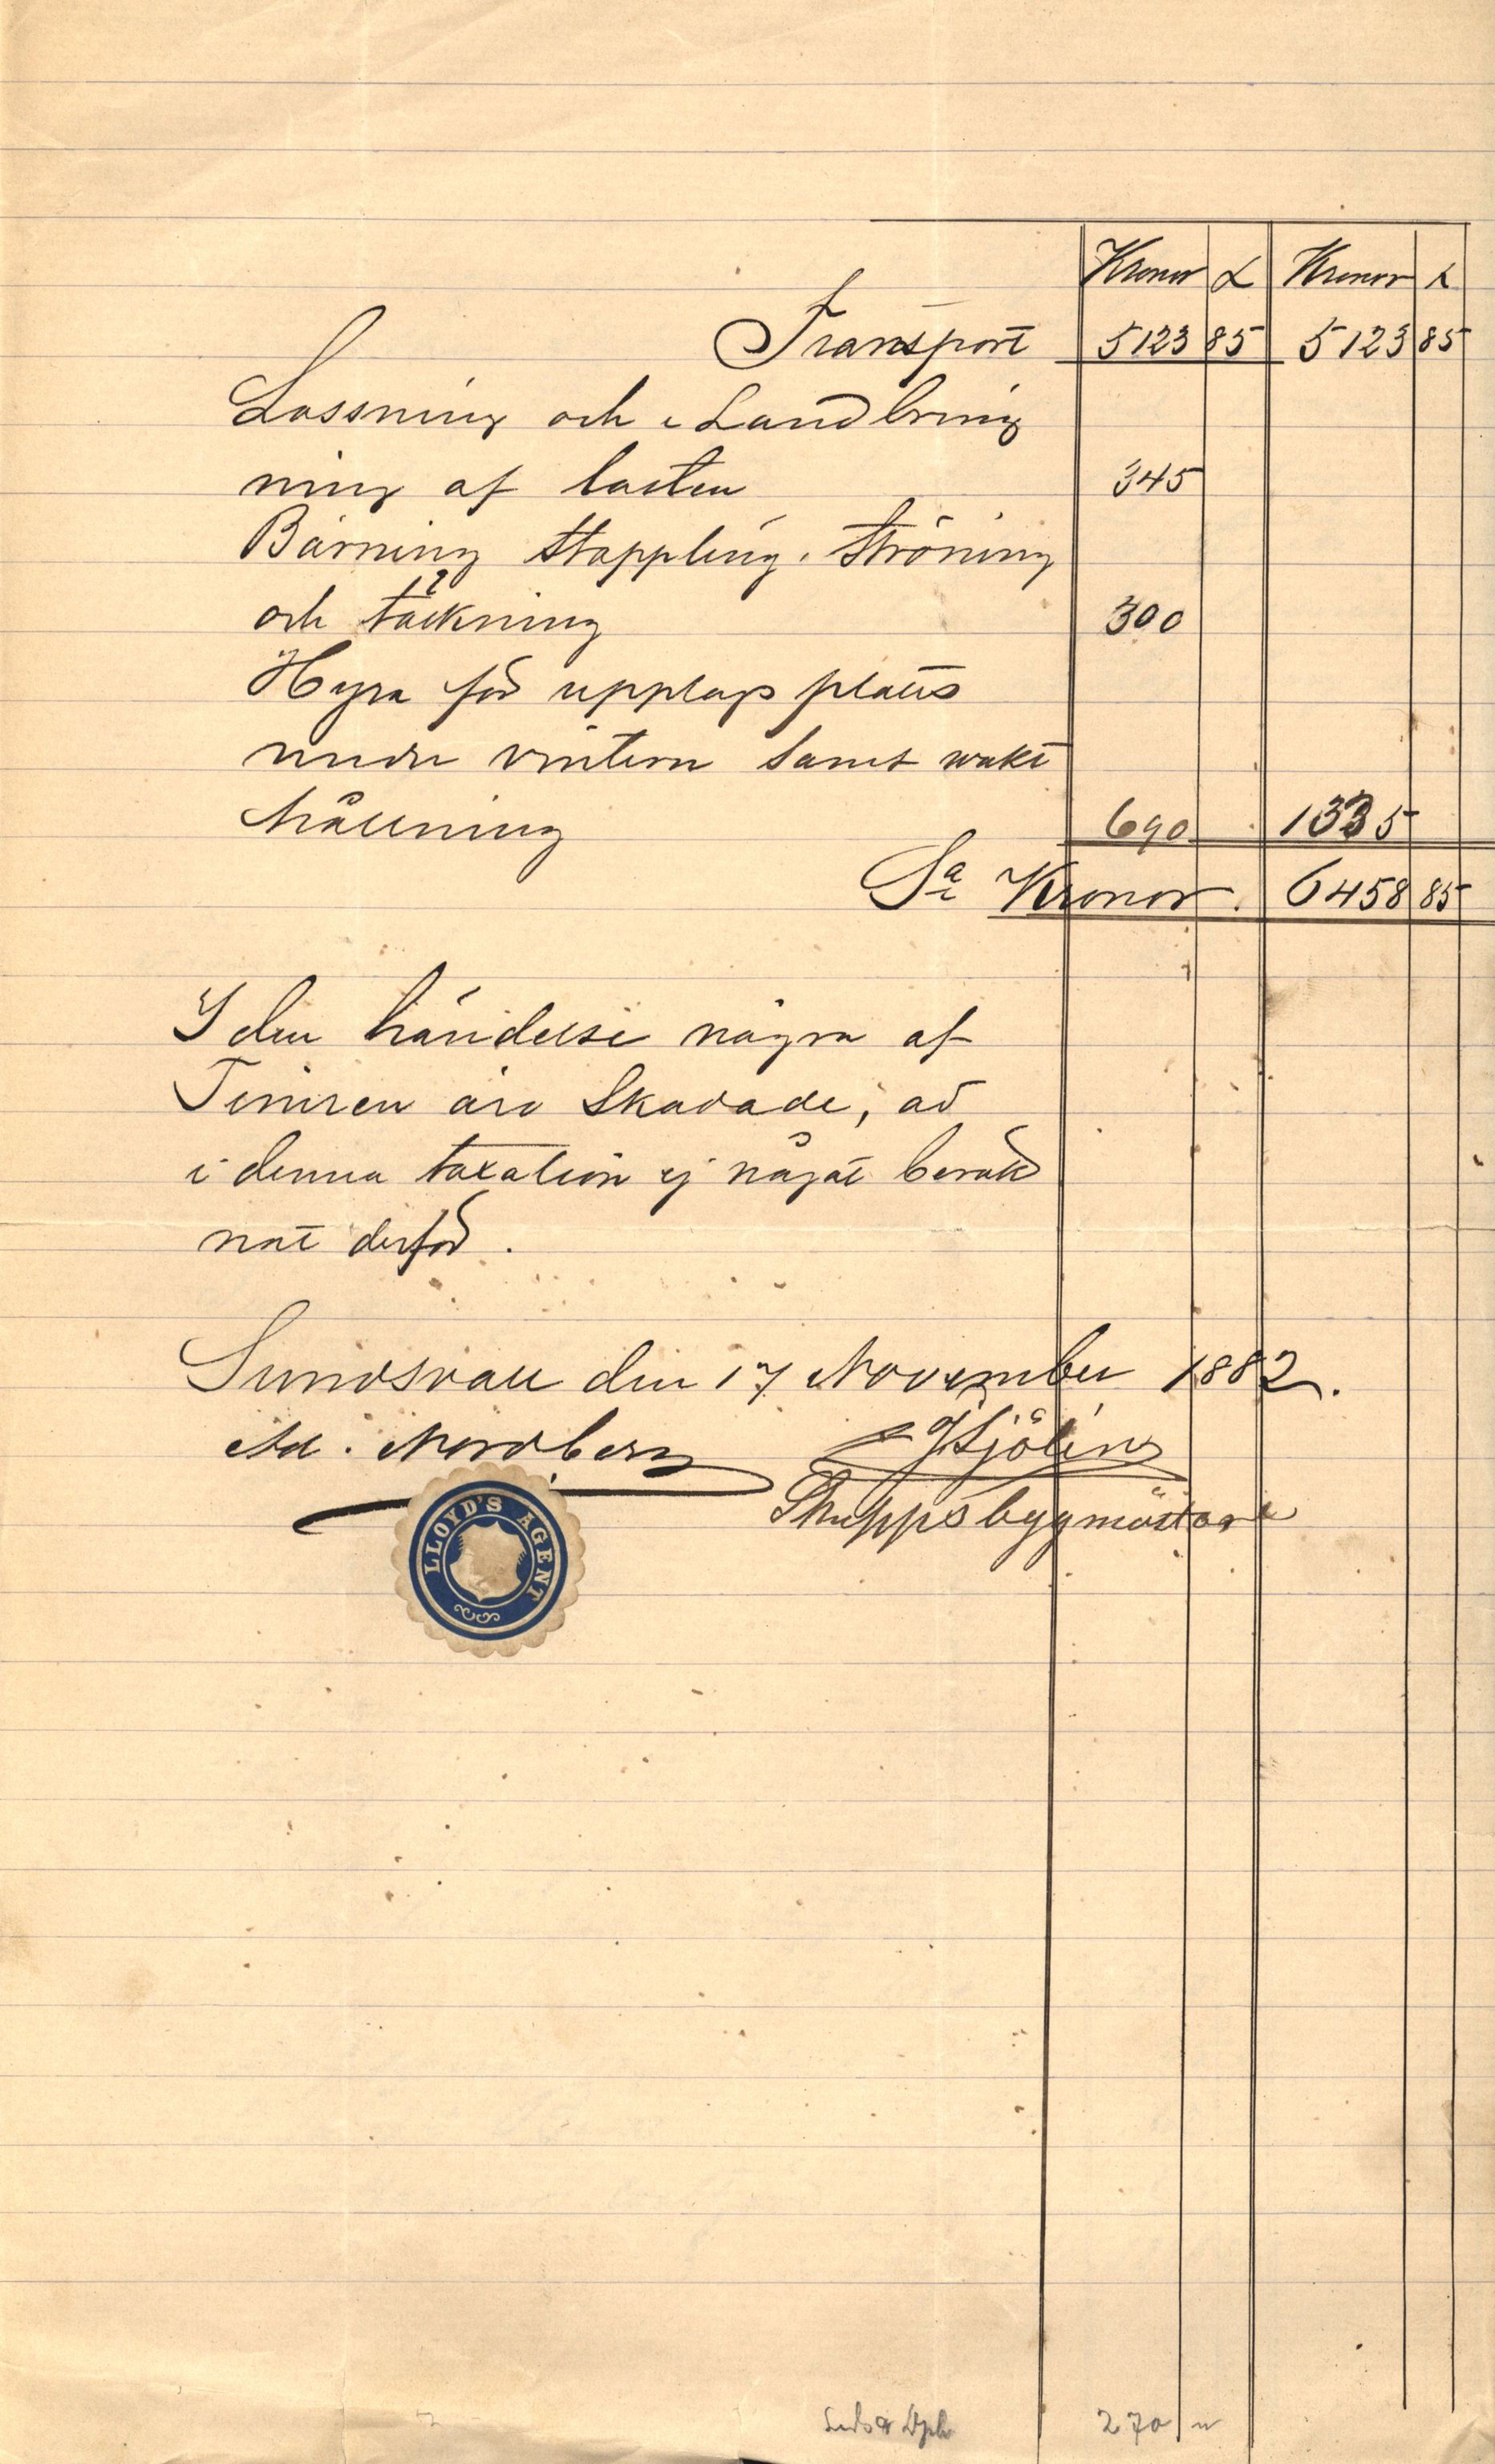 Kronor Kronor
Transport 5123 85 5123 85
Lossning och Landbring
ning af lasten 345
Bärning stappling, ströning
och täckning 300
Hyra för upplags plats
under vintern samt vakt
hållning 690 1335
Sa Kronor. 6458 85
I den händelse några af
äro skadade, är
i denna taxation ej något beräk
nat derför.
Sundsvall den 17 November 1882.
Ad. Nordberg Sjölin
Skeppsbyggmästare
LLOYD'S AGENT
270